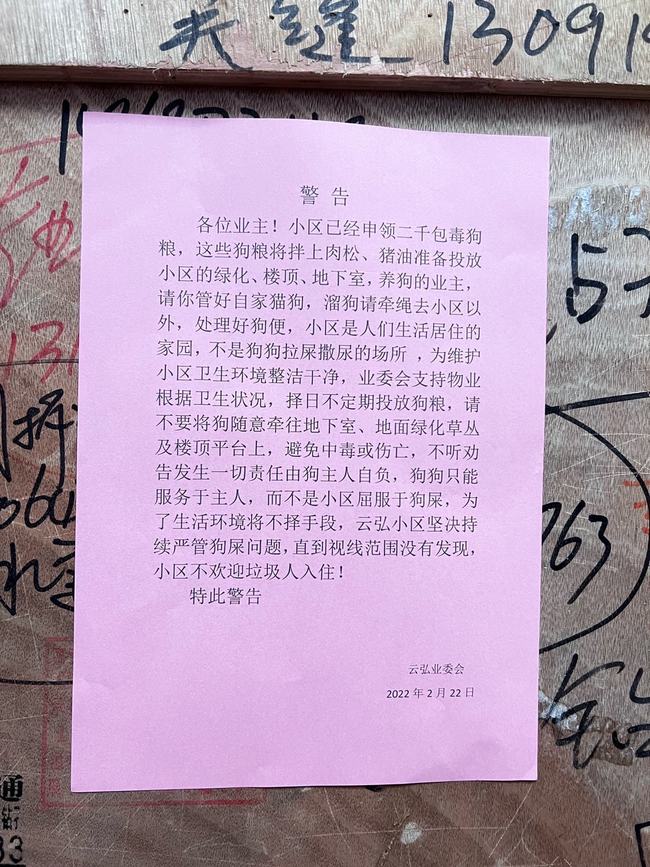 美缝 13091
警告
各位业主！小区已经申领二千包毒狗
粮，这些狗粮将拌上肉松、猪油准备投放
小区的绿化、楼顶、地下室，养狗的业主，
请你管好自家猫狗，溜狗请牵绳去小区以
外，处理好狗便，小区是人们生活居住的
家园，不是狗狗拉屎撒尿的场所 ，为维护
小区卫生环境整洁干净，业委会支持物业
根据卫生状况，择日不定期投放狗粮，请
不要将狗随意牵往地下室、地面绿化草丛
及楼顶平台上，避免中毒或伤亡，不听劝
告发生一切责任由狗主人自负，狗狗只能
服务于主人，而不是小区屈服于狗屎，为
了生活环境将不择手段，云弘小区坚决持
续严管狗屎问题，直到视线范围没有发现，
小区不欢迎垃圾人入住！
特此警告
云弘业委会
2022 年 2 月 22 日
763
通
33